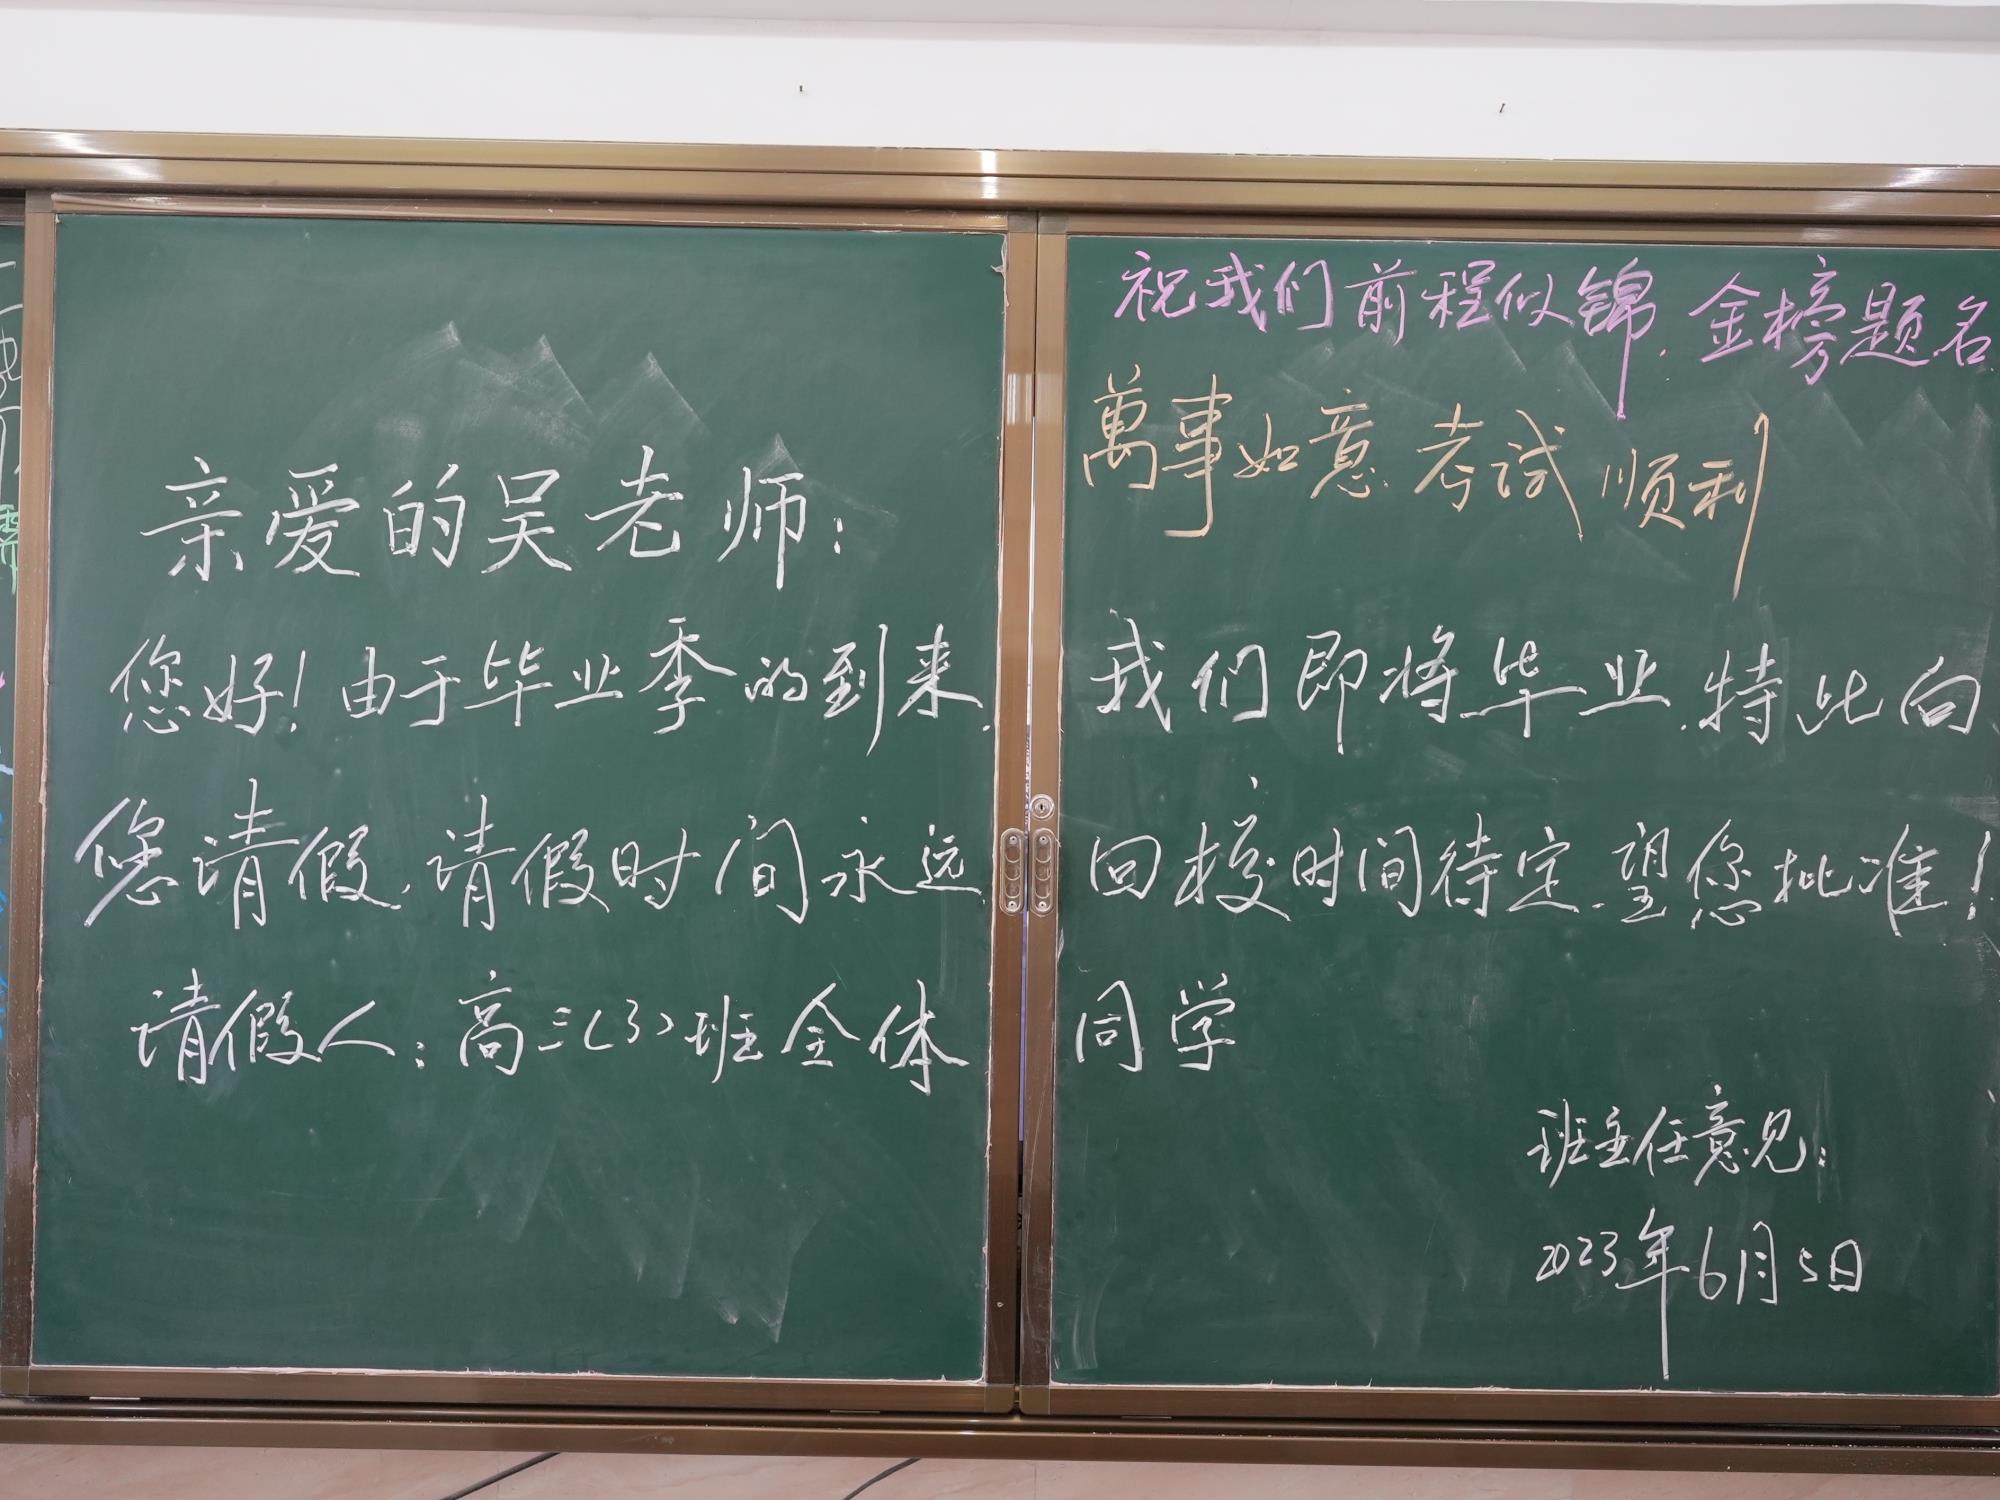 祝我们前程似锦.金榜题名.
萬事如意 考试顺利
亲爱的吴老师:
您好!由于毕业季的到来,我们即将毕业.特此向
您请假.请假时间永远,回校时间待定.望您批准!
请假人:高三(3)班全体同学
班主任意见:
2023年6月5日